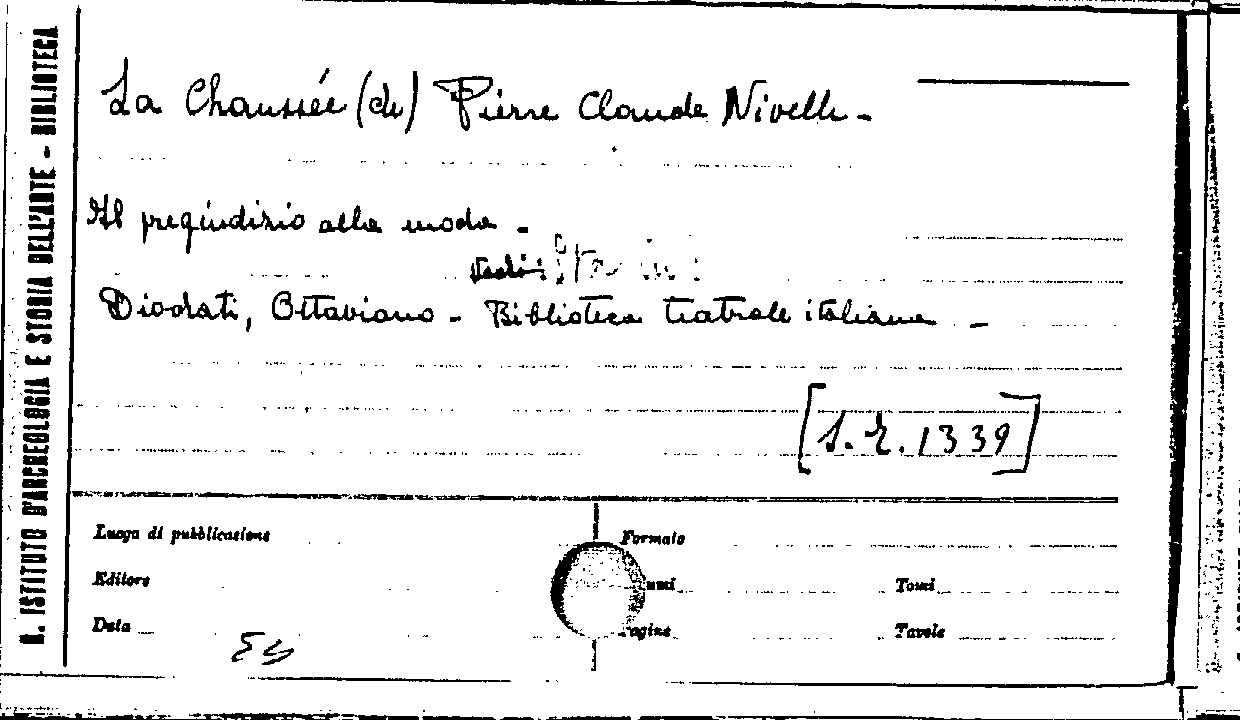 R. ISTITUTO D'ARCHEOLOGIA E STORIA DELL'ARTE - BIBLIOTECA
La Chaussée (de) Pierre Claude Nivelle -
Il pregiudizio alla moda -
Vedi:
Diodati, Ottaviano - Biblioteca teatrale italiana -
[S. R. 1339]
Luogo di pubblicazione
Formato
Editore
Tomi
Data
Pagine
Tavole